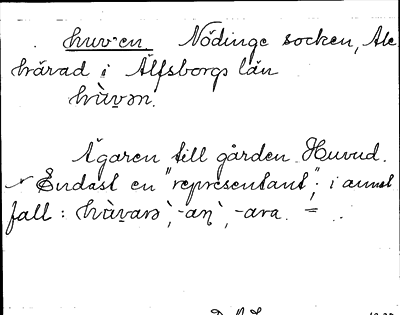 huven Nödinge socken, Ale
härad i Älfsborgs län
hùvən.
Ägaren till gården Huvud.
Endast en "representant"; i annat
fall: hùvarə, -aṇ, -ara. =